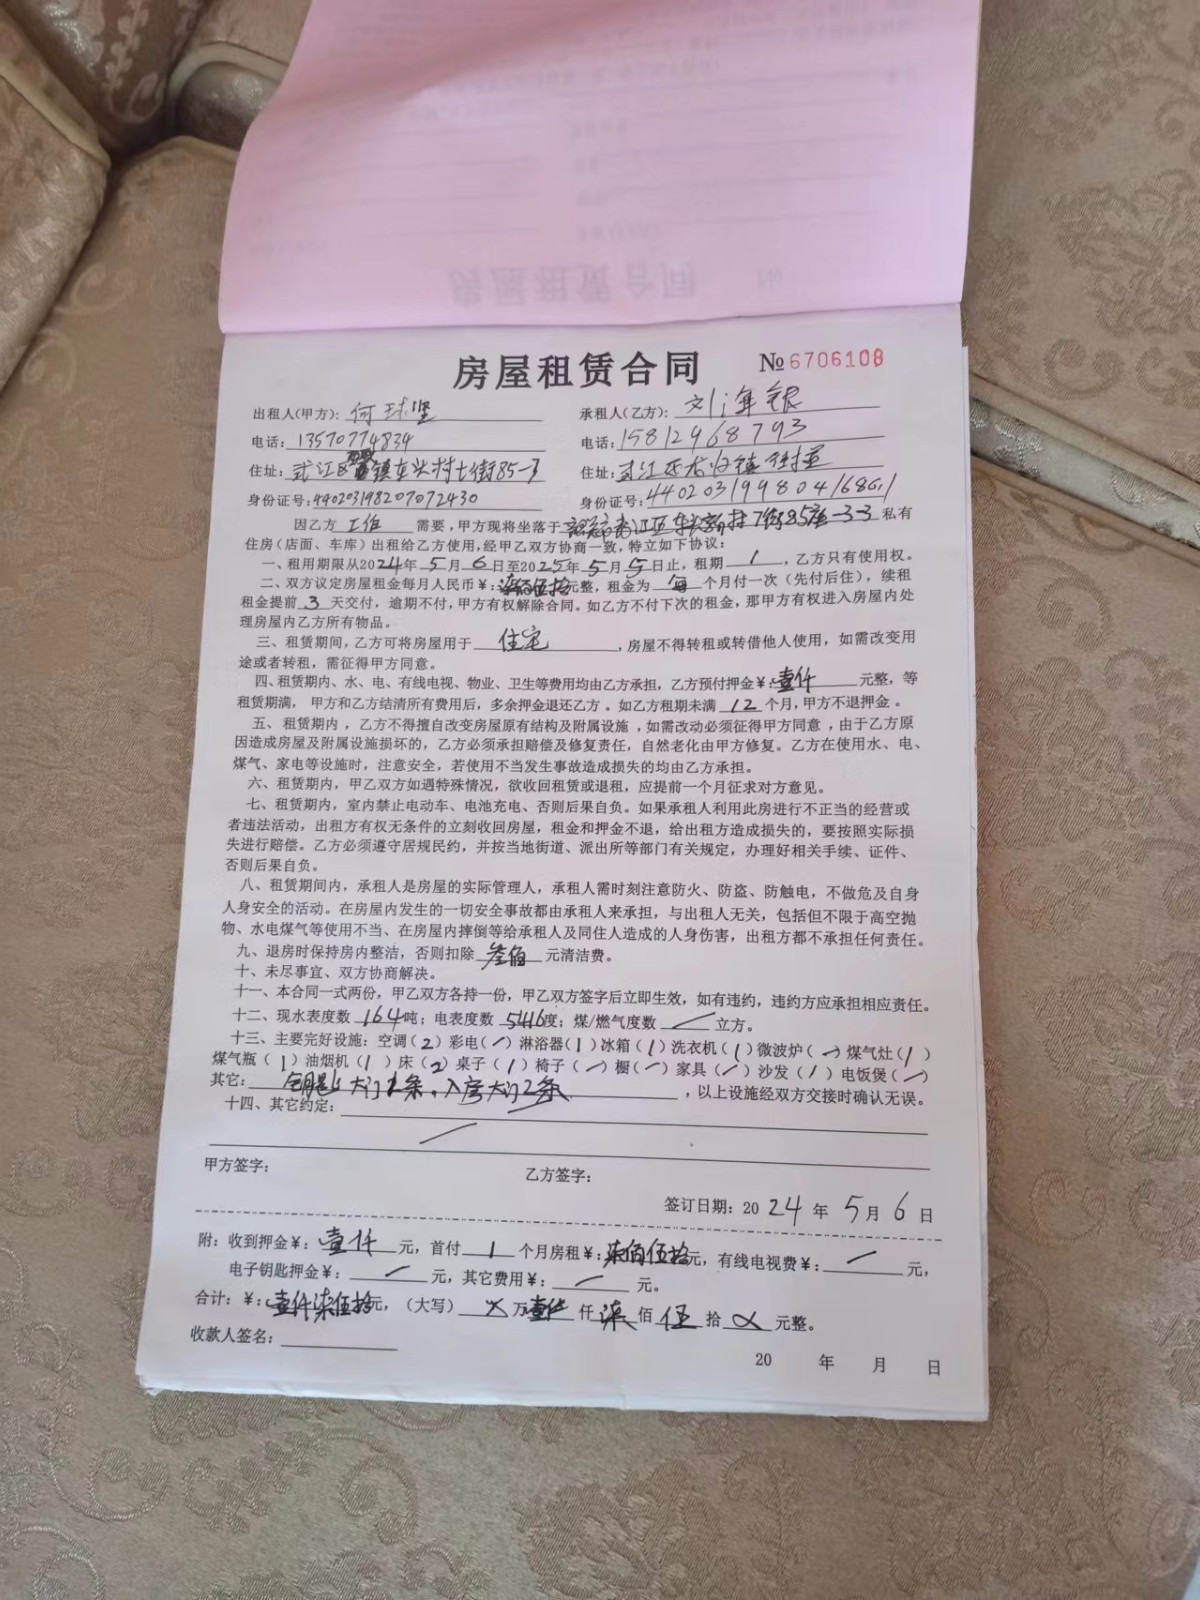 房屋租赁合同 №6706108
出租人(甲方): 何球坚 承租人(乙方): 刘年银
电话: 13570774834 电话: 15812968793
住址: 武江区 镇车头村七街85-3 住址: 武江区龙归镇
身份证号: 440203198207072430 身份证号: 440203199804168611
因乙方 工作 需要,甲方现将坐落于 韶关市武江区车头新村7街85座-3-3 私有
住房(店面、车库)出租给乙方使用,经甲乙双方协商一致,特立如下协议:
一、租用期限从2024年5月6日至2025年5月5日止,租期 1 ,乙方只有使用权。
二、双方议定房屋租金每月人民币¥:柒佰伍拾元整,租金为 每 个月付一次(先付后住),续租
租金提前 3 天交付,逾期不付,甲方有权解除合同。如乙方不付下次的租金,那甲方有权进入房屋内处
理房屋内乙方所有物品。
三、租赁期间,乙方可将房屋用于 住宅 ,房屋不得转租或转借他人使用,如需改变用
途或者转租,需征得甲方同意。
四、租赁期内、水、电、有线电视、物业、卫生等费用均由乙方承担,乙方预付押金¥:壹仟 元整,等
租赁期满, 甲方和乙方结清所有费用后,多余押金退还乙方 。如乙方租期未满 12 个月,甲方不退押金 。
五、租赁期内 ,乙方不得擅自改变房屋原有结构及附属设施 ,如需改动必须征得甲方同意 ,由于乙方原
因造成房屋及附属设施损坏的,乙方必须承担赔偿及修复责任,自然老化由甲方修复。乙方在使用水、电、
煤气、家电等设施时,注意安全,若使用不当发生事故造成损失的均由乙方承担。
六、租赁期内,甲乙双方如遇特殊情况,欲收回租赁或退租,应提前一个月征求对方意见。
七、租赁期内,室内禁止电动车、电池充电、否则后果自负。如果承租人利用此房进行不正当的经营或
者违法活动,出租方有权无条件的立刻收回房屋,租金和押金不退,给出租方造成损失的,要按照实际损
失进行赔偿。乙方必须遵守居规民约,并按当地街道、派出所等部门有关规定,办理好相关手续、证件、
否则后果自负。
八、租赁期间内,承租人是房屋的实际管理人,承租人需时刻注意防火、防盗、防触电,不做危及自身
人身安全的活动。在房屋内发生的一切安全事故都由承租人来承担,与出租人无关,包括但不限于高空抛
物、水电煤气等使用不当、在房屋内摔倒等给承租人及同住人造成的人身伤害,出租方都不承担任何责任。
九、退房时保持房内整洁,否则扣除 叁佰 元清洁费。
十、未尽事宜、双方协商解决。
十一、本合同一式两份,甲乙双方各持一份,甲乙双方签字后立即生效,如有违约,违约方应承担相应责任。
十二、现水表度数 164 吨;电表度数 5416 度;煤/燃气度数 / 立方。
十三、主要完好设施:空调(2)彩电(/)淋浴器(1)冰箱(1)洗衣机(1)微波炉(/)煤气灶(1)
煤气瓶(1)油烟机(1)床(2)桌子(1)椅子(/)橱(/)家具(/)沙发(1)电饭煲(/)
其它: 钥匙:大门1条,入房大门2条 ,以上设施经双方交接时确认无误。
十四、其它约定:
/
甲方签字: 乙方签字:
签订日期:2024年5月6日
附:收到押金¥:壹仟 元,首付 1 个月房租¥:柒佰伍拾元,有线电视费¥: / 元,
电子钥匙押金¥: / 元,其它费用¥: / 元。
合计:¥:壹仟柒伍拾元,(大写) X 万 壹仟 仟 柒 佰 伍 拾 X 元整。
收款人签名:
20 年 月 日